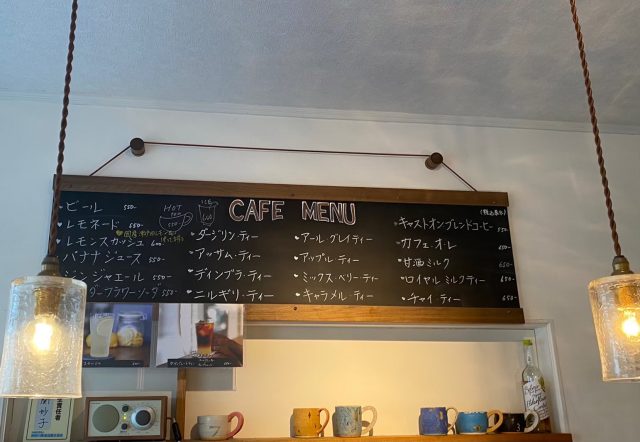 CAFE MENU
HOT TEA 550
ICE 600
(税込表示)
ビール 550-
レモネード 650-
レモンスカッシュ 600
バナナジュース 550-
ジンジャエール 550-
フラワーソーダ 550-
ダージリン・ティー
アッサム・ティー
ディンブラ・ティー
ニルギリ・ティー
アール グレイ ティー
アップル ティー
ミックス・ベリー・ティー
キャラメル ティー
キャストオンブレンドコーヒー 550-
カフェ・オレ 650-
甘酒 ミルク 650-
ロイヤル ミルクティー 650-
チャイ・ティー 650-